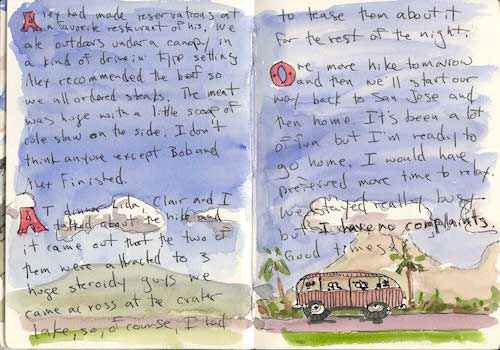 Alex had made reservations at
a favorite restaurant of his. We
ate outdoors under a canopy in
a kind of drive in type setting
Alex recommended the beef so
we all ordered steaks. The meat
was huge with a little scoop of
cole slaw on the side. I don't
think anyone except Bob and
Alex Finished.
AT dinner Linda, Clair and I
talked about the hike and
it came out that the two of
them were attracted to 3
huge steroidy guys we
came across at the crater
lake, so, of course, I had
to tease them about it
for the rest of the night.
One more hike tomorrow
and then we'll start our
way back to San Jose and
then home. It's been a lot
of fun but I'm ready to
go home. I would have
preferred more time to relax.
We stayed really busy
but I have no complaints.
Good times!